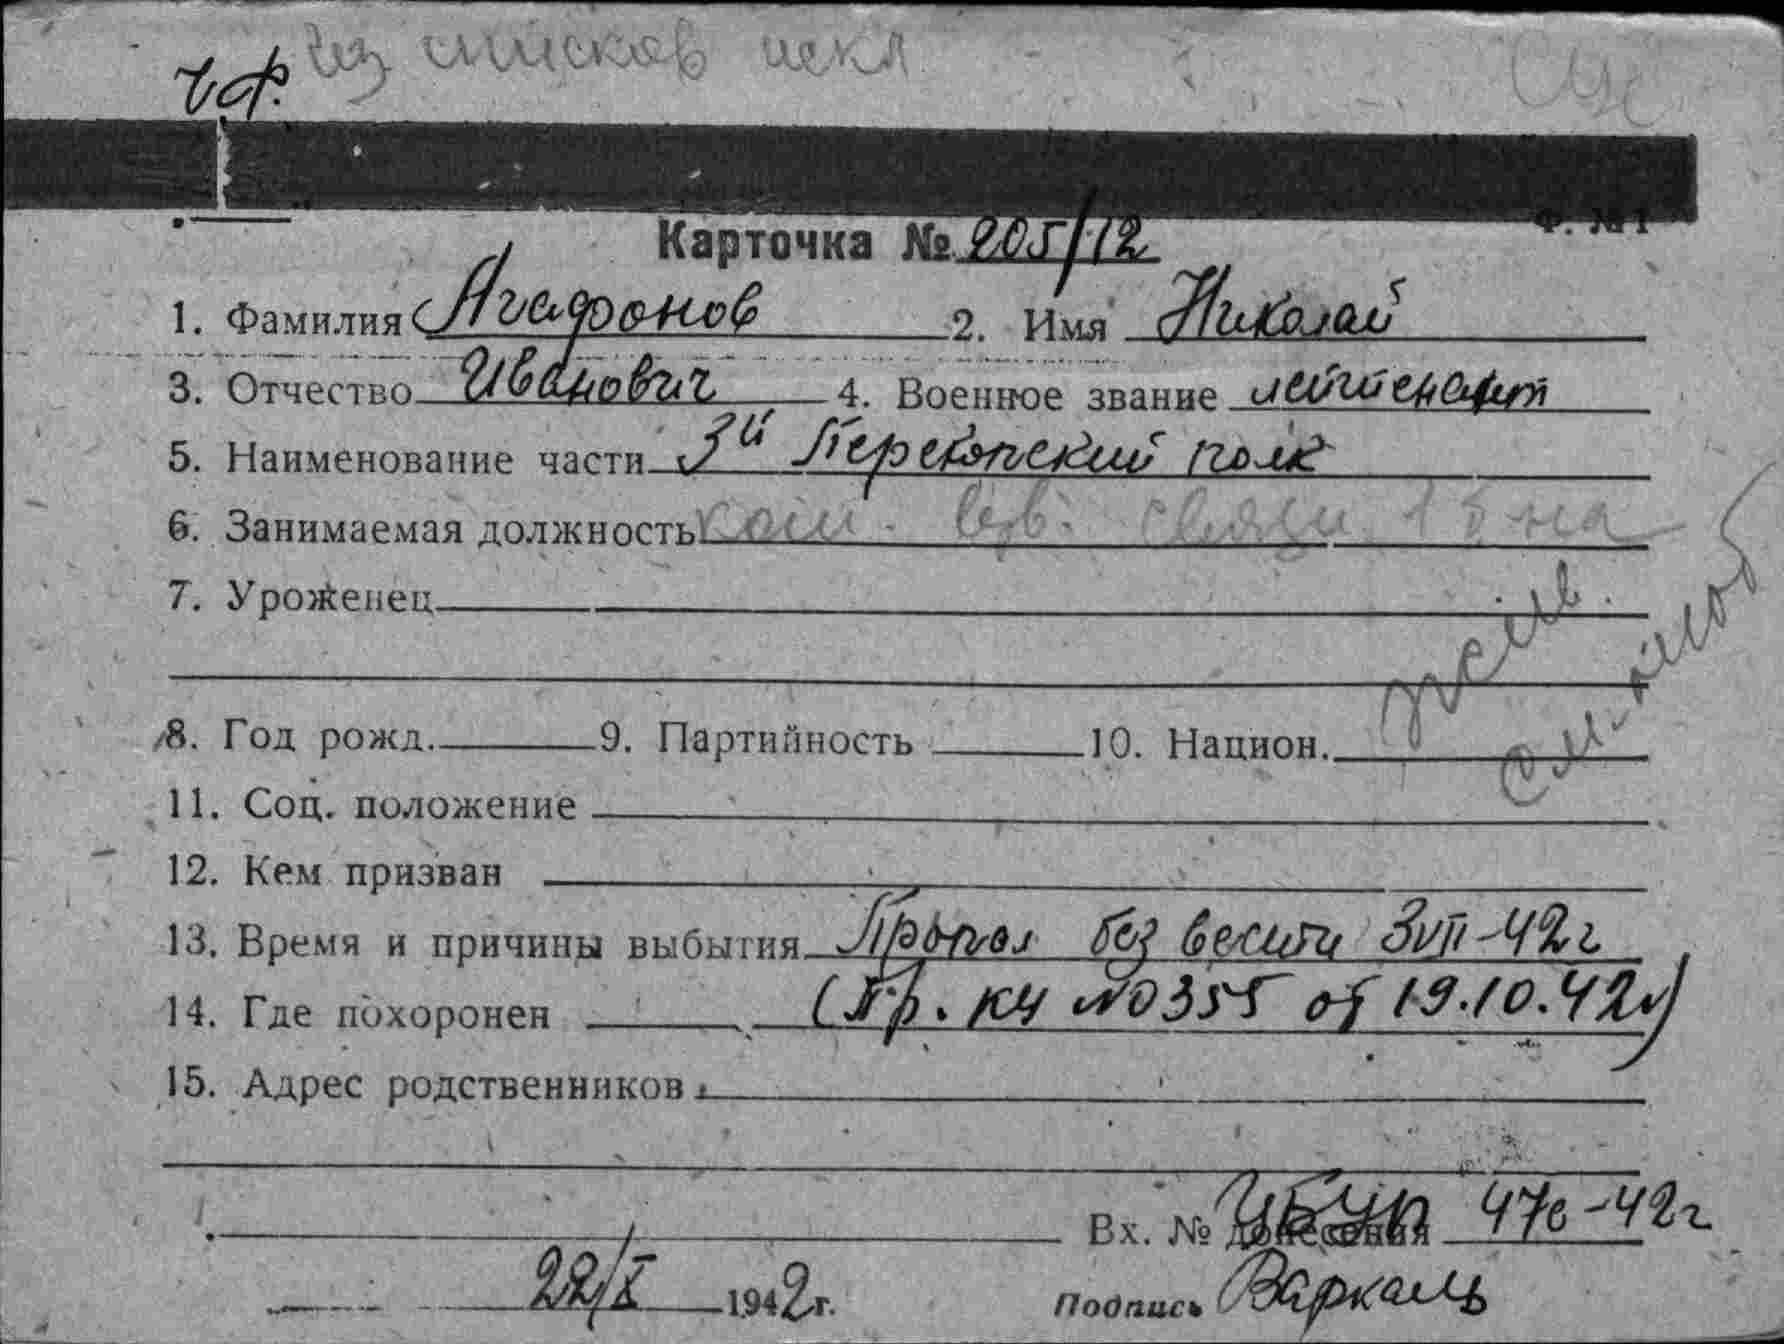 из списков искл
Ф. № 1
Карточка № 205/12
1. Фамилия Агафонов 2. Имя Николай
3. Отчество Иванович 4. Военное звание лейтенант
5. Наименование части 3й Перекопский полк
6. Занимаемая должность ком. взв. связи 1 б-на
7. Уроженец
8. Год рожд. 9. Партийность 10. Национ.
11. Соц. положение
12. Кем призван
13. Время и причины выбытия Пропал без вести 3/VII-42г
14. Где похоронен (Пр. КЧ №0355 от 19.10.42г)
15. Адрес родственников
Вх. № донесения 47с-42г
22/X 1942г.
Подпись